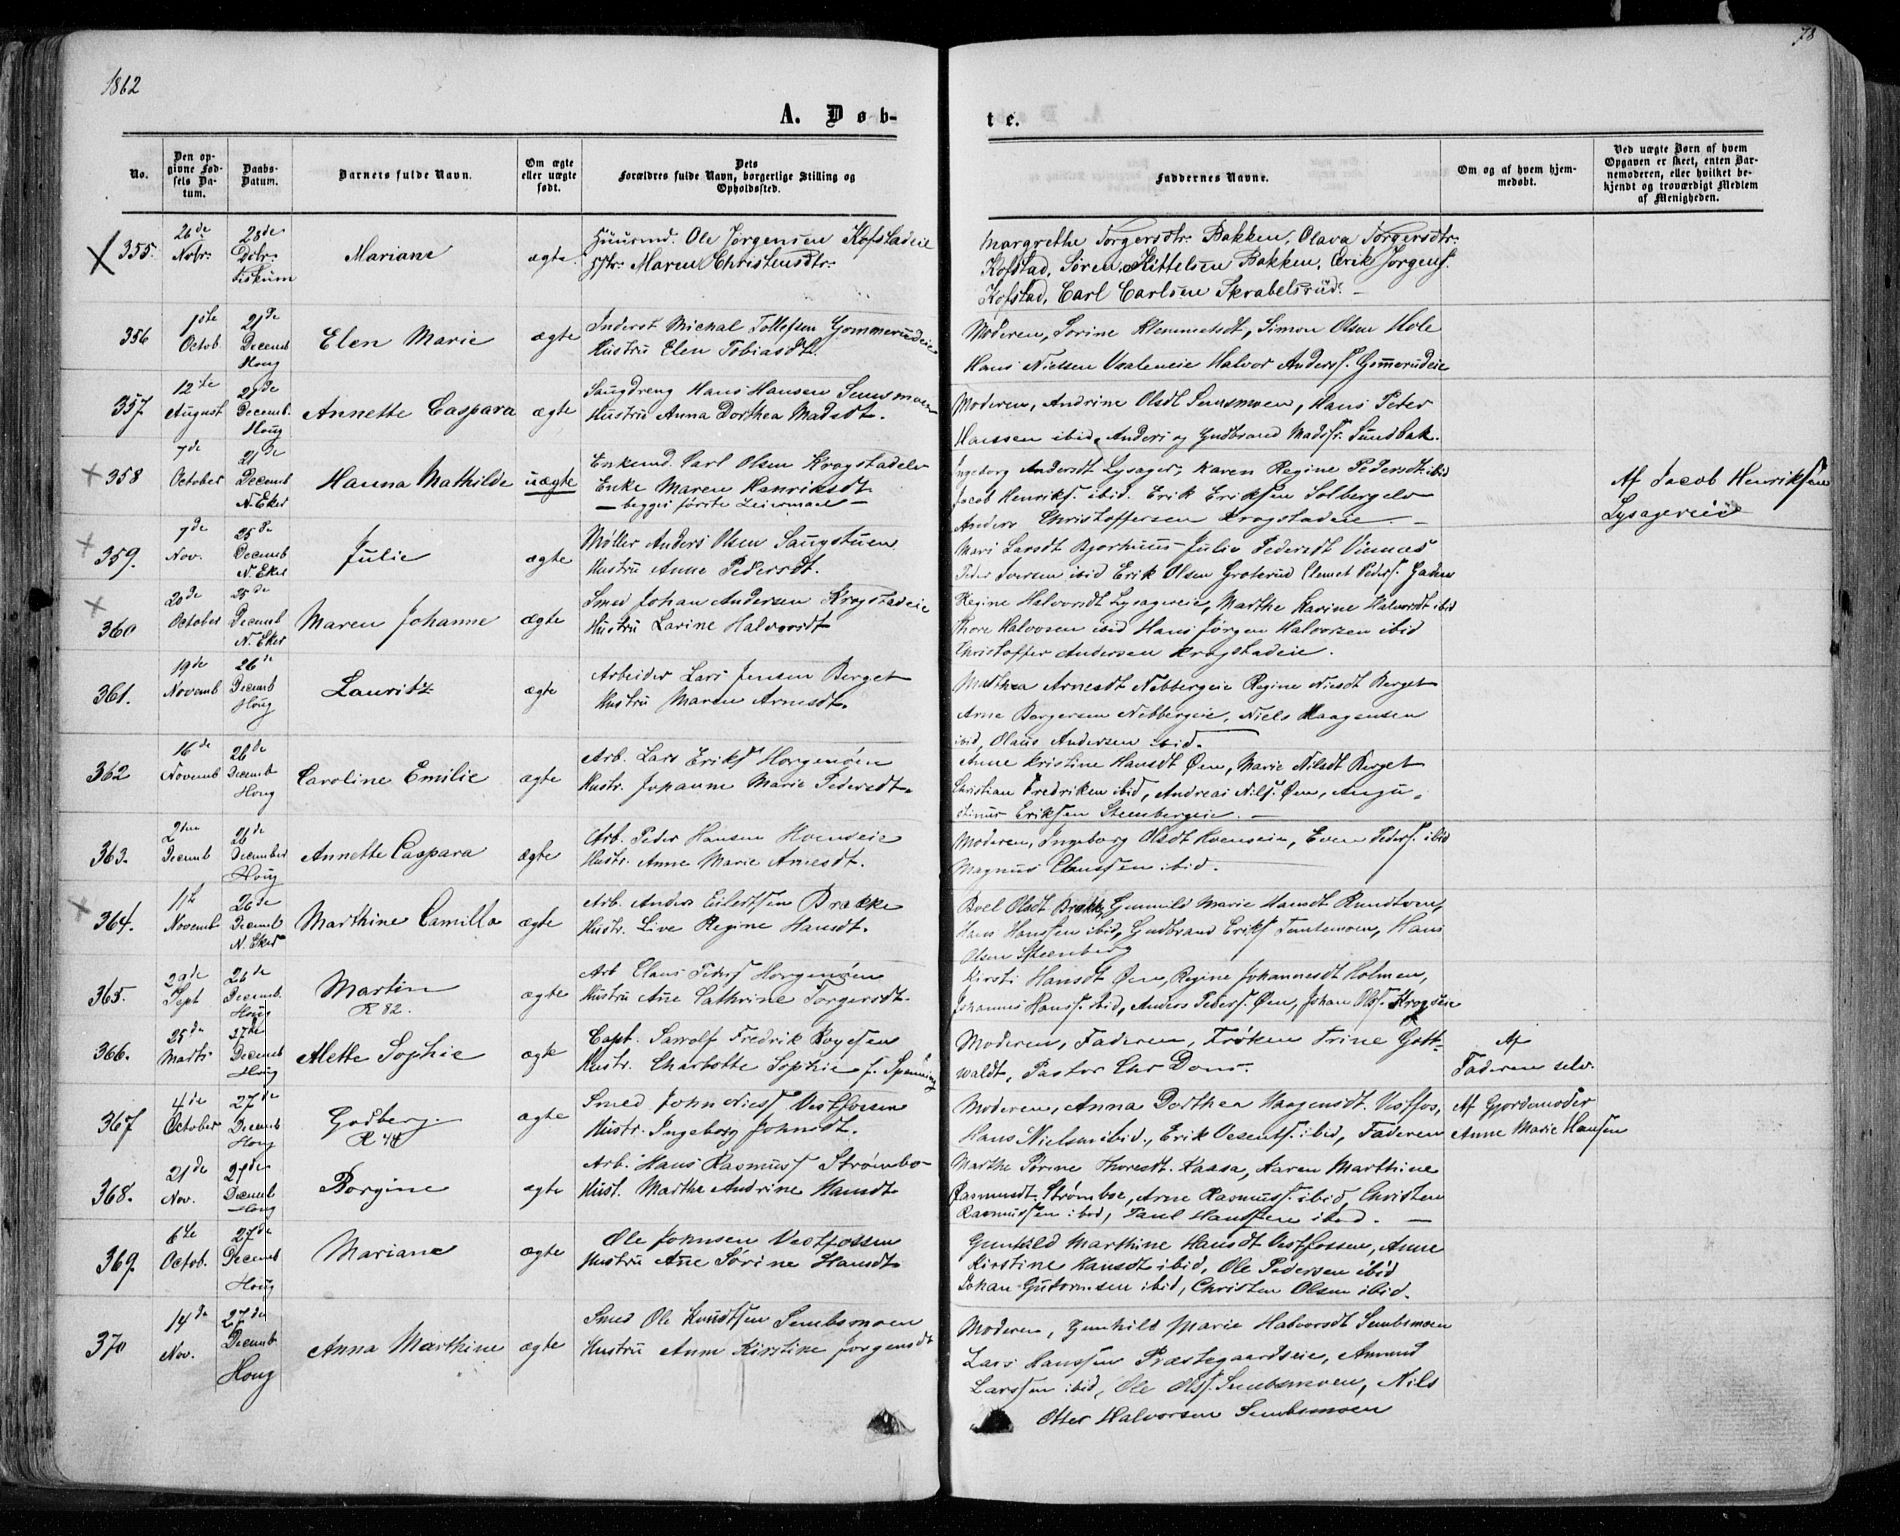 1862
78
A. Døb-
te.
No.
Den opgivne Fødsels Datum.
Daabs-Datum.
Barnets fulde Navn.
Om ægte eller uægte født.
Dets Forældres fulde Navn, borgerlige Stilling og Opholdssted.
Faddernes Navne.
Om og af hvem hjemmedøbt.
Ved uægte Børn af hvem Opgaven er skeet, enten Barnemoderen, eller hvilket bekjendt og troværdigt Medlem af Menigheden.
355. 26de Nobr. 28de Debr. Fiskum Mariane ægte. Huusmd. Ole Jørgensen Kofstadeie
Hstr. Maren Christensdtr.
Margrethe Torgersdtr. Bakken, Olava Torgersdtr.
Kofstad, Søren Kittelsen Bakken, Erik Jørgens.
Kofstad, Carl Carlsen Skrabelsrud. —
356 1ste Octob. 21de Decemb Houg Elen Marie ægte Inderst Michal Tollefsen Gommerudeie
Hustru Elen Tobiasdt.
Moderen, Sorine Klemmetsdt, Simon Olsen Hole
Hans Nielsen Halvor Anders. Gomerudeie
357 12te August 21de Decemb. Houg Annette Caspara ægte Saugdreng Hans Hansen Semsmoen
Hustru Anna Dorthea Madsdt.
Moderen, Andrine Olsdt Semsmoen, Hans Peter
Hanssen ibid, Anders og Gudbrand Madss. Sundbak.
358 7de October 21de Decemb N. Eker Hanna Mathilde uægte Enkemd. Carl Olsen Krogstadelv
Enke Maren Henriksdt.
— begges første Leiermaal —
Ingeborg Andersdt Lysager, Karen Regine Pedersdt ibid
Jacob Henriks. ibid. Erik Eriksen Solbergelv
Anders Christoffersen Krogstadeie. —
Af Jacob Henriksen
Lysagereie
359. 7de Nov. 25de Decemb N. Eker Julie ægte Møller Anders Olsen Saugstuen
Hustru Anne Pedersdt.
Mari Larsdt Bjorhuus Julie Pedersdt Vinnæs
Peder Iversen ibid Erik Olsen Groterud Clemet Peders.
360 20de October 25de Decemb N. Eker Maren Johanne ægte Smed Johan Andersen Krogstadeie
Hustru Larine Halvorsdt
Regine Halvorsdt Lysagereie, Marthe Karine Halvorsdt ibid
Thore Halvosen ibid Hans Jørgen Halvorsen ibid
Christoffer Andersen Krogstadeie.
361. 19de Novemb 26de Decemb Houg Lauritz ægte Arbeider Lars Jensen Berget
Hustru Maren Arnesdt.
Mathea Arnesdt Nebbergeie Regine Niesdt Berget
Arne Borgersen Nebbergeie, Niels Haagensen
ibid, Olaus Andersen ibid.
362 16de Novemb 26de Decemb Houg Caroline Emilie ægte Arb. Lars Eriks Horgenøien
Hustr. Johanne Marie Pedersdt.
Anne Kristine Hansdt Øen, Marie Nilsdt Berget
Christian Fredriken ibid, Andreas Nils. Øen, Augu-
stinus Eriksen Steinbergeie. —
363. 2den Decemb 26de December Houg Annette Caspara ægte Arb. Peder Hansen Hvenseie
Hustr. Anne Marie Arnesdt.
Moderen, Ingeborg Olsdt Hvenseie, Even Peders. ibid
Magnus Claussen ibid.
364. 11te Novemb 26de Decemb N. Eker Marthine Camilla ægte Arb. Anders Eilertsen Brække
Hustr. Live Regine Hansdt.
Boel Olsdt Brække, Gunnild Marie Hansdt Rundtoen,
Hans Hanssen ibid, Gudbrand Eriks Temtemoen, Hans
Olsen Steenberg
365. 29de Sept 26de Decemb. Houg Martin ægte Arb Claus Peders Horgenøen
R 82. Hustru Ane Cathrine Torgersdt.
Kirsti Hansdt Øen, Regine Johannesdt Holmen,
Johannes Hanss. ibid, Anders Peders. Øen, Johan Olss. Krogseie
366. 25de Marts 27de Decemb Houg Alette Sophie ægte Capt. Sarrolf Fredrik Royesen
Hustr. Charlotte Sophie f. Spenning
Moderen, Faderen, Frøken Trine Gott-
waldt, Pastor Chr Dons.
Af
Faderen selv.
367. 4de October 27de Decemb Houg Godberg. ægte Smed John Niess Vestfossen
R 44 Hustr. Ingeborg Johnsdt.
Moderen, Anna Dorthea Haagensdt. Vestfos,
Hans Nielsen ibid., Erik Vesents. ibid, Faderen
Af Gjordemoder
Anne Marie Hansen
368. 21de Nov. 27de Decemb Houg Borgine ægte Arb. Hans Rasmuss Strømbo
Hust. Marthe Andrine Hansdt.
Marthe Sørine Thoresdt. Kaasa, Karen Marthine
Rasmusdt. Strømboe, Arne Rasmuss. ibid, Christen
Rasmussen ibid, Paul Hanssen ibid. —
369. 6te Octob. 27de Decemb Houg Mariane ægte Ole Johnsen Vestfossen
Hustru Ane Sørine Hansdt.
Gunhild Marthine Hansdt Vestfossen, Anne
Kirstine Hansdt ibid, Ole Pedersen ibid
Johan Gutormsen ibid, Christen Olsen ibid.
370 14de Nov. 27de Decemb Houg Anna Marthine ægte Smed Ole Knudtsen Sembsmoen
Hustru Anne Kirstine Jørgensdt
Moderen, Gunhild Marie Halvorsdt Sembsmoen
Lars Hanssen Præstegaardseie, Amund
Larssen ibid, Ole Olss. Sembsmoen, Nils
Otter Halvorsen Sembsmoen